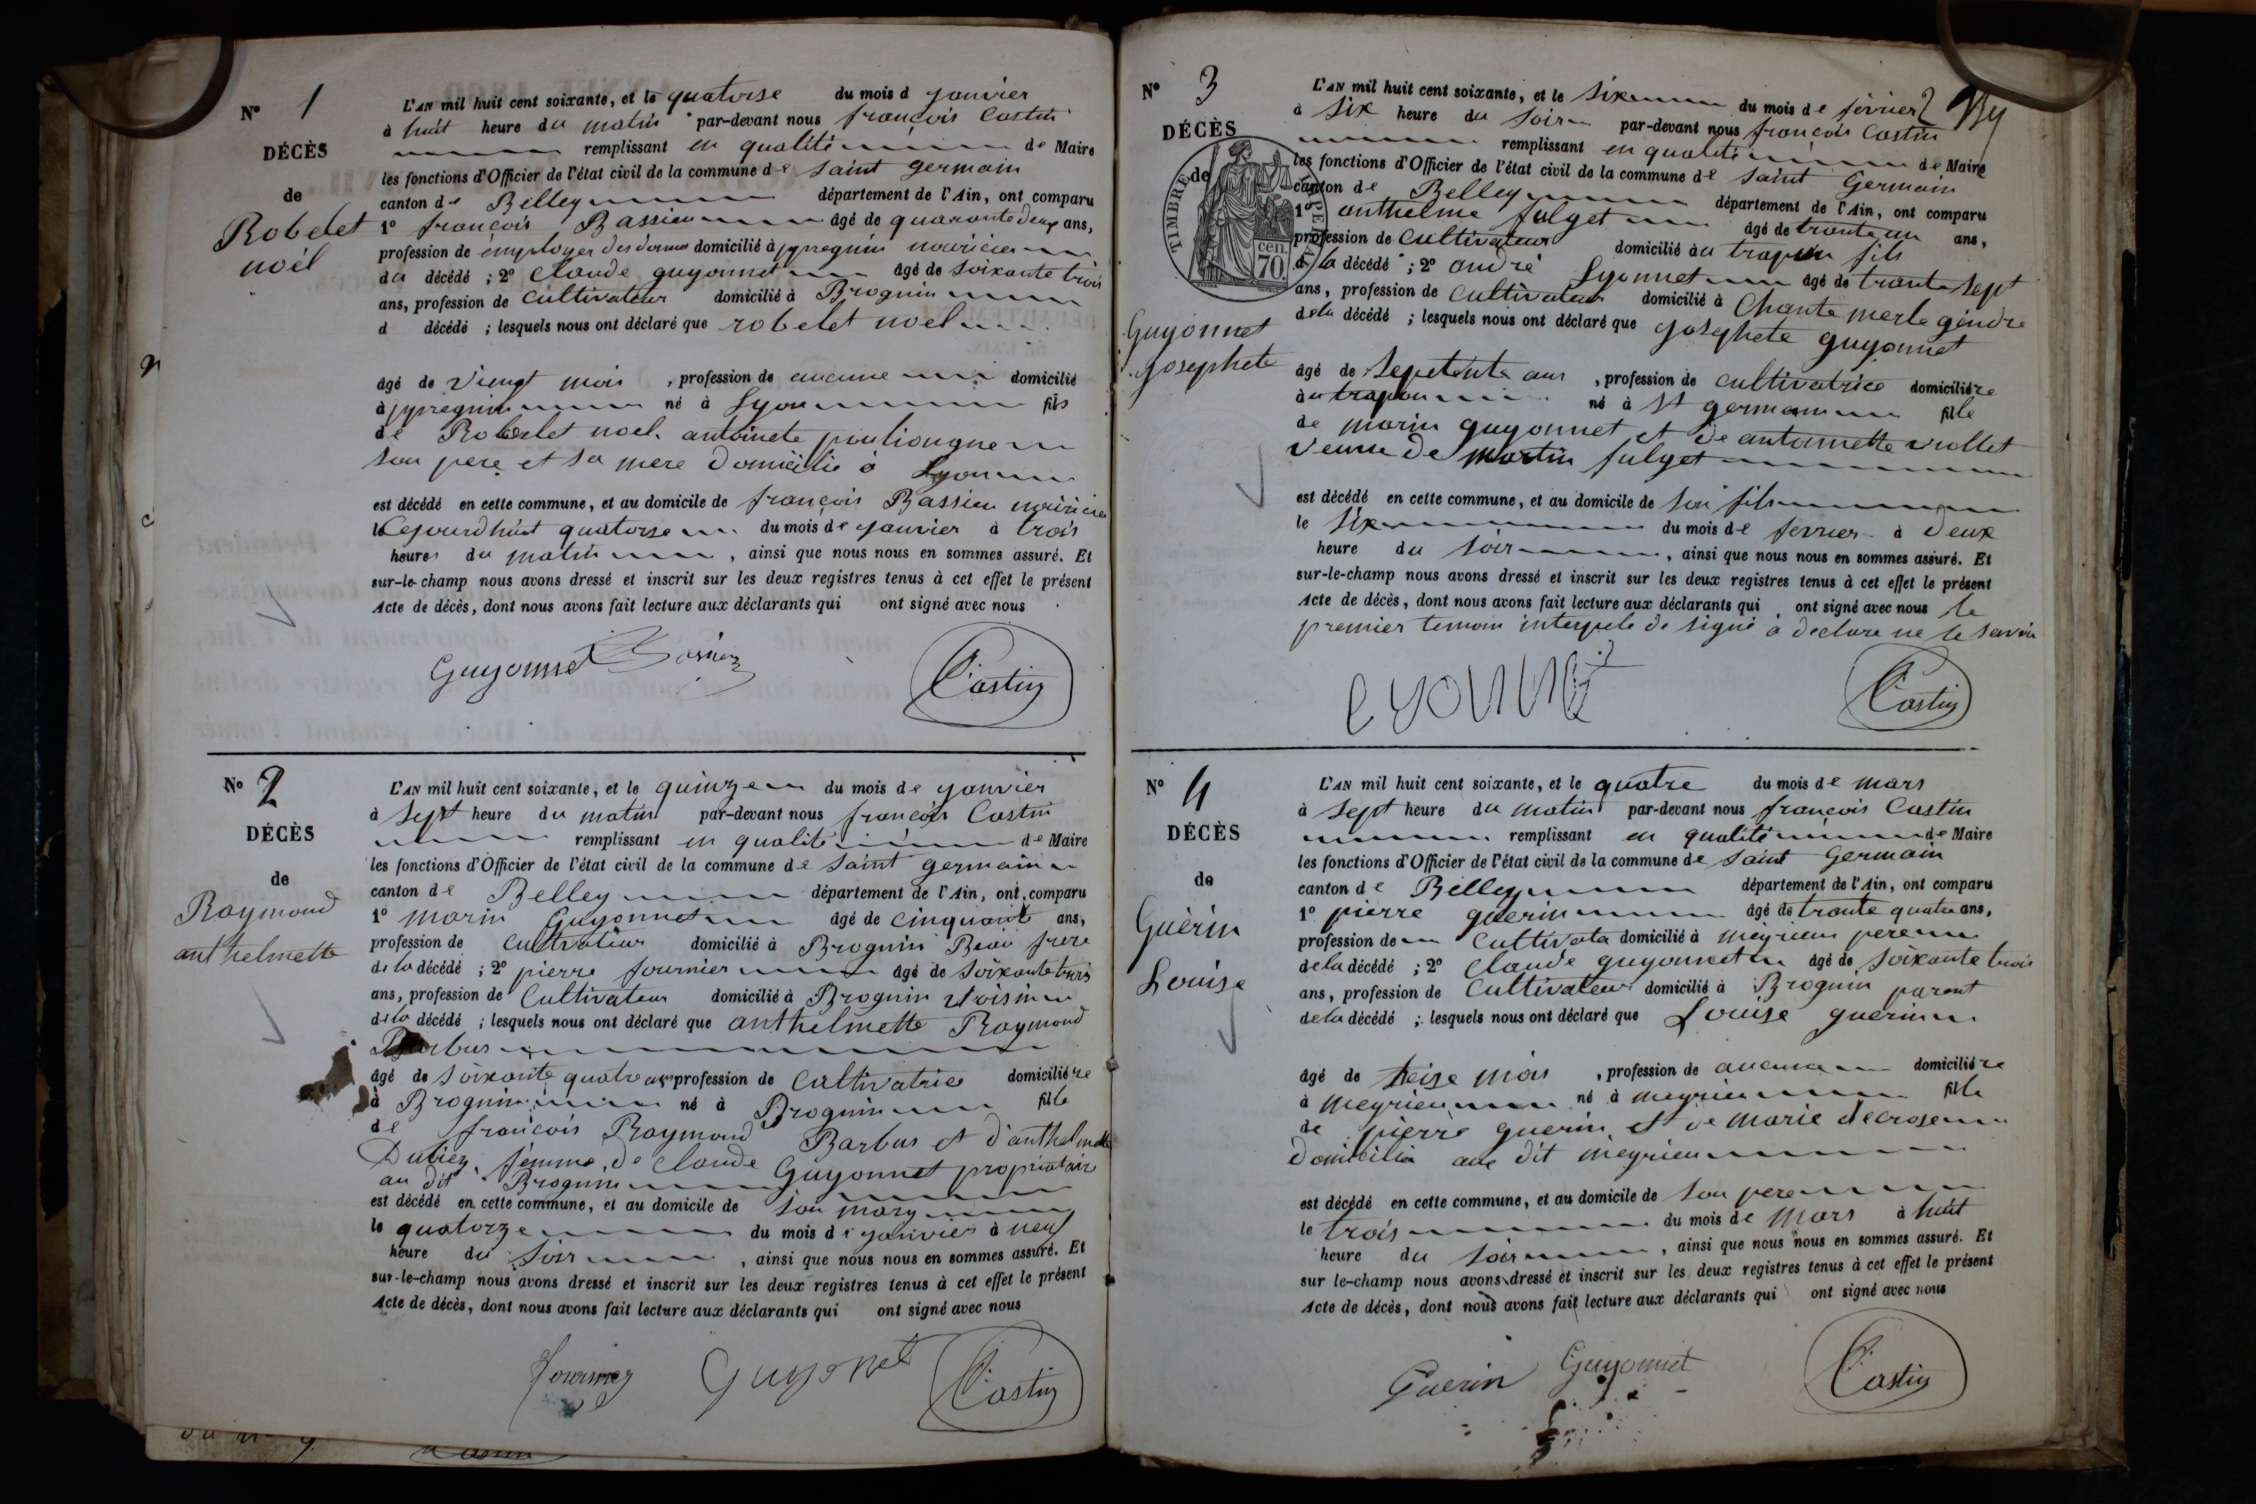 N° 1
DÉCÈS
de
Robelet
noél
L'AN mil huit cent soixante, et le quatorse du mois d janvier
à huit heure du matin par-devant nous françois Castin
remplissant en qualité de Maire
les fonctions d'Officier de l'état civil de la commune de Saint germain
canton de Belley département de l'Ain, ont comparu
1° françois Bassieu âgé de quarante deux ans,
profession de employer des domicilié à nouricier
du décédé ; 2° Claude guyonnet âgé de soixante trois
ans, profession de Cultivateur domicilié à Brognin
d décédé ; lesquels nous ont déclaré que robelet noel
âgé de viengt mois , profession de aucune domicilié
à né à Lyon fils
de Robelet noel. antoinete
son pere et sa mere domicilié à Lyon
est décédé en cette commune, et au domicile de françois Bassieu
le Cejourdhuit quatorse du mois de janvier à trois
heures du matin , ainsi que nous nous en sommes assuré. Et
sur-le-champ nous avons dressé et inscrit sur les deux registres tenus à cet effet le présent
Acte de décès, dont nous avons fait lecture aux déclarants qui ont signé avec nous
Guyonnet Castin
N° 2
DÉCÈS
de
Raymond
anthelmette
L'AN mil huit cent soixante, et le quinze du mois de janvier
à sept heure du matin par-devant nous françois Castin
remplissant en qualité de Maire
les fonctions d'Officier de l'état civil de la commune de Saint germain
canton de Belley département de l'Ain, ont comparu
1° marin Guyonnet âgé de cinquante ans,
profession de cultivateur domicilié à Brognin Beau frere
de la décédé ; 2° pierre fournier âgé de soixante trois
ans, profession de Cultivateur domicilié à Brognin voisin
de la décédé ; lesquels nous ont déclaré que anthelmette Raymond
Barbus
âgé de soixante quatre ans profession de Cultivatrice domicilié re
à Brognin né à Brognin fille
de françois Raymond Barbus et d'anthelmette
Dubiez femme de Claude Guyonnet propriataire
au dit Brognin
est décédé en cette commune, et au domicile de son mary
le quatorze du mois de janvier à neuf
heure du soir , ainsi que nous nous en sommes assuré. Et
sur-le-champ nous avons dressé et inscrit sur les deux registres tenus à cet effet le présent
Acte de décès, dont nous avons fait lecture aux déclarants qui ont signé avec nous
fournier Guyonet Castin
N° 3
DÉCÈS
de
TIMBRE
cen.
70.
Guyonnet
Josephete
L'AN mil huit cent soixante, et le six du mois de févrierz
à six heure du soir par-devant nous françois Castin
remplissant en qualité de Maire
les fonctions d'Officier de l'état civil de la commune de Saint Germain
canton de Belley département de l'Ain, ont comparu
1° anthelme fulget âgé de trante un ans,
profession de Cultivateur domicilié au trapon fils
d la décédé ; 2° andré Lyonnet âgé de trante sept
ans, profession de Cultivateur domicilié à Chante merle gendre
de la décédé ; lesquels nous ont déclaré que josephete guyonnet
âgé de Septente ans , profession de cultivatrice domicilié re
au trapon né à St germain fille
de marin guyonnet et de antoinette viollet
veuve de martin fulget
est décédé en cette commune, et au domicile de son fils
le six du mois de fevrier à deux
heure du soir , ainsi que nous nous en sommes assuré. Et
sur-le-champ nous avons dressé et inscrit sur les deux registres tenus à cet effet le présent
Acte de décès, dont nous avons fait lecture aux déclarants qui ont signé avec nous le
premier temoin interpele de signé a déclare ne le savoir
Castin
N° 4
DÉCÈS
de
Guérin
Louise
L'AN mil huit cent soixante, et le quatre du mois de mars
à sept heure du matin par-devant nous françois Castin
remplissant en qualité de Maire
les fonctions d'Officier de l'état civil de la commune de Saint Germain
canton de Belley département de l'Ain, ont comparu
1° pierre guerin âgé de trante quatre ans,
profession de Cultivata domicilié à meyrieu pere
de la décédé ; 2° Claude guyonnet âgé de soixante trois
ans, profession de Cultivateur domicilié à Brognin parent
de la décédé ; lesquels nous ont déclaré que Louise guerin
âgé de treize mois , profession de aucune domicilié re
à meyrieu né à meyrieu fille
de pierre guerin et de marie decrose
Domicilié dit meyrieu
est décédé en cette commune, et au domicile de son pere
le trois du mois de mars à huit
heure du soir , ainsi que nous nous en sommes assuré. Et
sur le-champ nous avons dressé et inscrit sur les deux registres tenus à cet effet le présent
Acte de décès, dont nous avons fait lecture aux déclarants qui ont signé avec nous
Guerin Guyonnet Castin